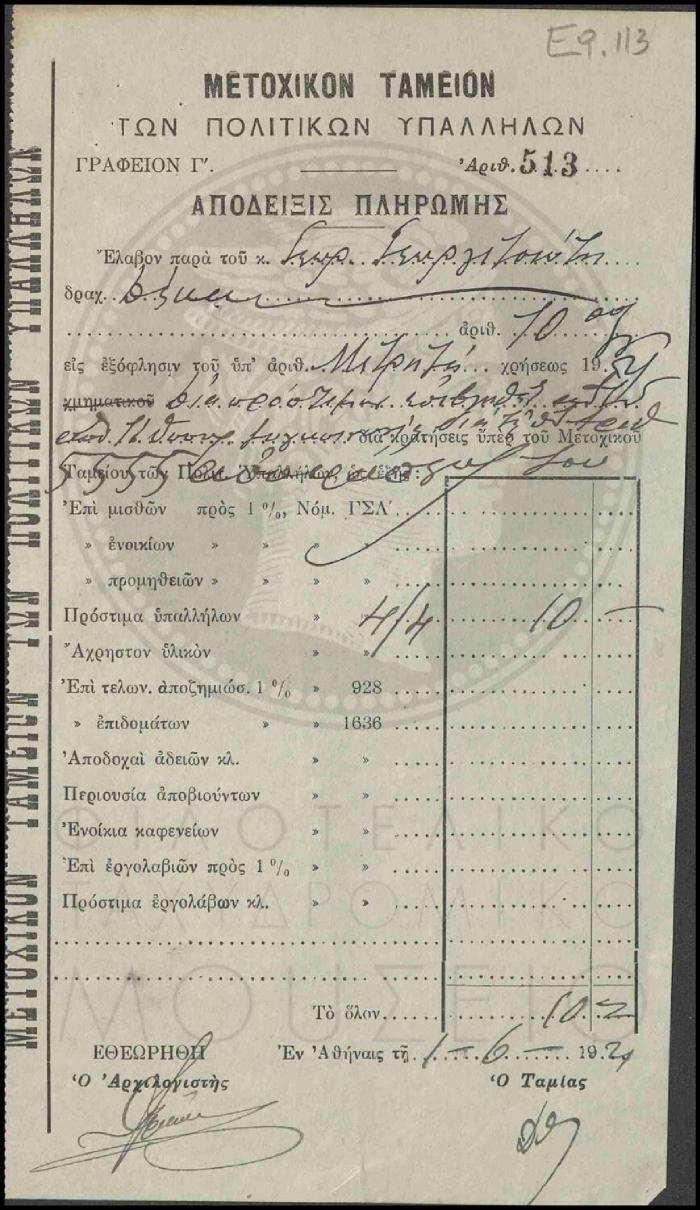 Εφ. 113
ΜΕΤΟΧΙΚΟΝ ΤΑΜΕΙΟΝ
ΤΩΝ ΠΟΛΙΤΙΚΩΝ ΥΠΑΛΛΗΛΩΝ
ΓΡΑΦΕΙΟΝ Γʹ. Ἀριθ. 513
ΑΠΟΔΕΙΞΙΣ ΠΛΗΡΩΜΗΣ
Ἔλαβον παρὰ τοῦ κ. Γεωρ.
δραχ. Δέκα
ἀριθ. 10
εἰς ἐξόφλησιν τοῦ ὑπ' ἀριθ. χρήσεως 19
χρηματικοῦ
διὰ κρατήσεις ὑπὲρ τοῦ Μετοχικοῦ
Ταμείου τῶν Πολιτ. Ὑπαλλήλων ὡς ἑξῆς: 5555
Ἐπὶ μισθῶν πρὸς 1 %, Νόμ. ΓΣΛʹ
» ἐνοικίων » » » »
» προμηθειῶν » » » »
Πρόστιμα ὑπαλλήλων » 4/4 10 —
Ἄχρηστον ὑλικὸν » »
Ἐπὶ τελων. ἀποζημιώσ. 1 % » 928
» ἐπιδομάτων » » 1636
Ἀποδοχαὶ ἀδειῶν κλ. » »
Περιουσία ἀποβιούντων » »
Ἐνοίκια καφενείων » »
Ἐπὶ ἐργολαβιῶν πρὸς 1 % » »
Πρόστιμα ἐργολάβων κλ. » »
Τὸ ὅλον 10
ΕΘΕΩΡΗΘΗ Ἐν Ἀθήναις τῇ 1 - 6 - 192
Ὁ Ἀρχιλογιστὴς Ὁ Ταμίας
ΜΕΤΟΧΙΚΟΝ ΤΑΜΕΙΟΝ ΤΩΝ ΠΟΛΙΤΙΚΩΝ ΥΠΑΛΛΗΛΩΝ
ΦΙΛΟΤΕΛΙΚΟ
ΤΑΧΥΔΡΟΜΙΚΟ
ΜΟΥΣΕΙΟ